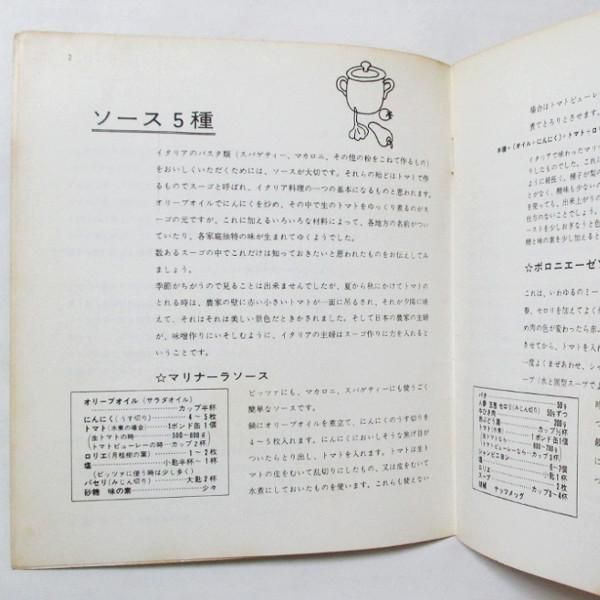 2
ソース5種
イタリアのパスタ類(スパゲティー、マカロニ、その他の粉をこねて作るもの)
をおいしくいただくためには、ソースが大切です。それらの殆どはトマトで作
るものでスーゴと呼ばれ、イタリア料理の一つの基本になるものと思われます。
オリーブオイルでにんにくを炒め、その中で生のトマトをゆっくり煮るのがス
ーゴの元ですが、これに加えるいろいろな材料によって、各地方の名前がつい
ていたり、各家庭独特の味が生まれてゆくようでした。
数あるスーゴの中でこれだけは知っておきたいと思われたものをお伝えしてみ
ましょう。
季節がちがうので見ることは出来ませんでしたが、夏から秋にかけてトマトの
とれる時は、農家の壁に赤い小さいトマトが一面に吊るされ、それが夕陽に映
えて、それはそれは美しい景色だときかされました。そして日本の農家の主婦
が、味噌作りにいそしむように、イタリアの主婦はスーゴ作りに力を入れると
いうことです。
☆マリナーラソース
オリーブオイル(サラダオイル)
カップ半杯
にんにく(うす切り) 4〜5枚
トマト(水煮の場合) 1ポンド缶1個
(生トマトの時 500〜600g)
(トマトピューレーの時 カップ2杯)
ロリエ(月桂樹の葉) 1〜2枚
塩 小匙半杯〜1杯
(ピッツァに使う時は少し多く)
パセリ(みじん切り) 大匙2杯
砂糖 味の素 少々
ピッツァにも、マカロニ、スパゲティーにも使うごく
簡単なソースです。
鍋にオリーブオイルを煮立て、にんにくのうす切りを
4〜5枚入れます。にんにくにおいしそうな焦げ目が
ついたらとり出し、トマトを入れます。トマトは生ト
マトの皮をむいて乱切りにしたもの、又は皮をむいて
水煮にしておいたものを使います。これらも使えない
場合はトマトピューレ
煮てとろりとさせます。
イタリアで味わったマリ
☆ボロニエーゼソ
これは、いわゆるのミー
春、セロリを加えてよく
め肉の色が変わったら赤
させてから、トマトを入
一度よくまぜあわせ、シャ
ープ(水と固型スープで
バター 50g
人参 玉葱 セロリ(みじん切り)
牛ひき肉 50gずつ